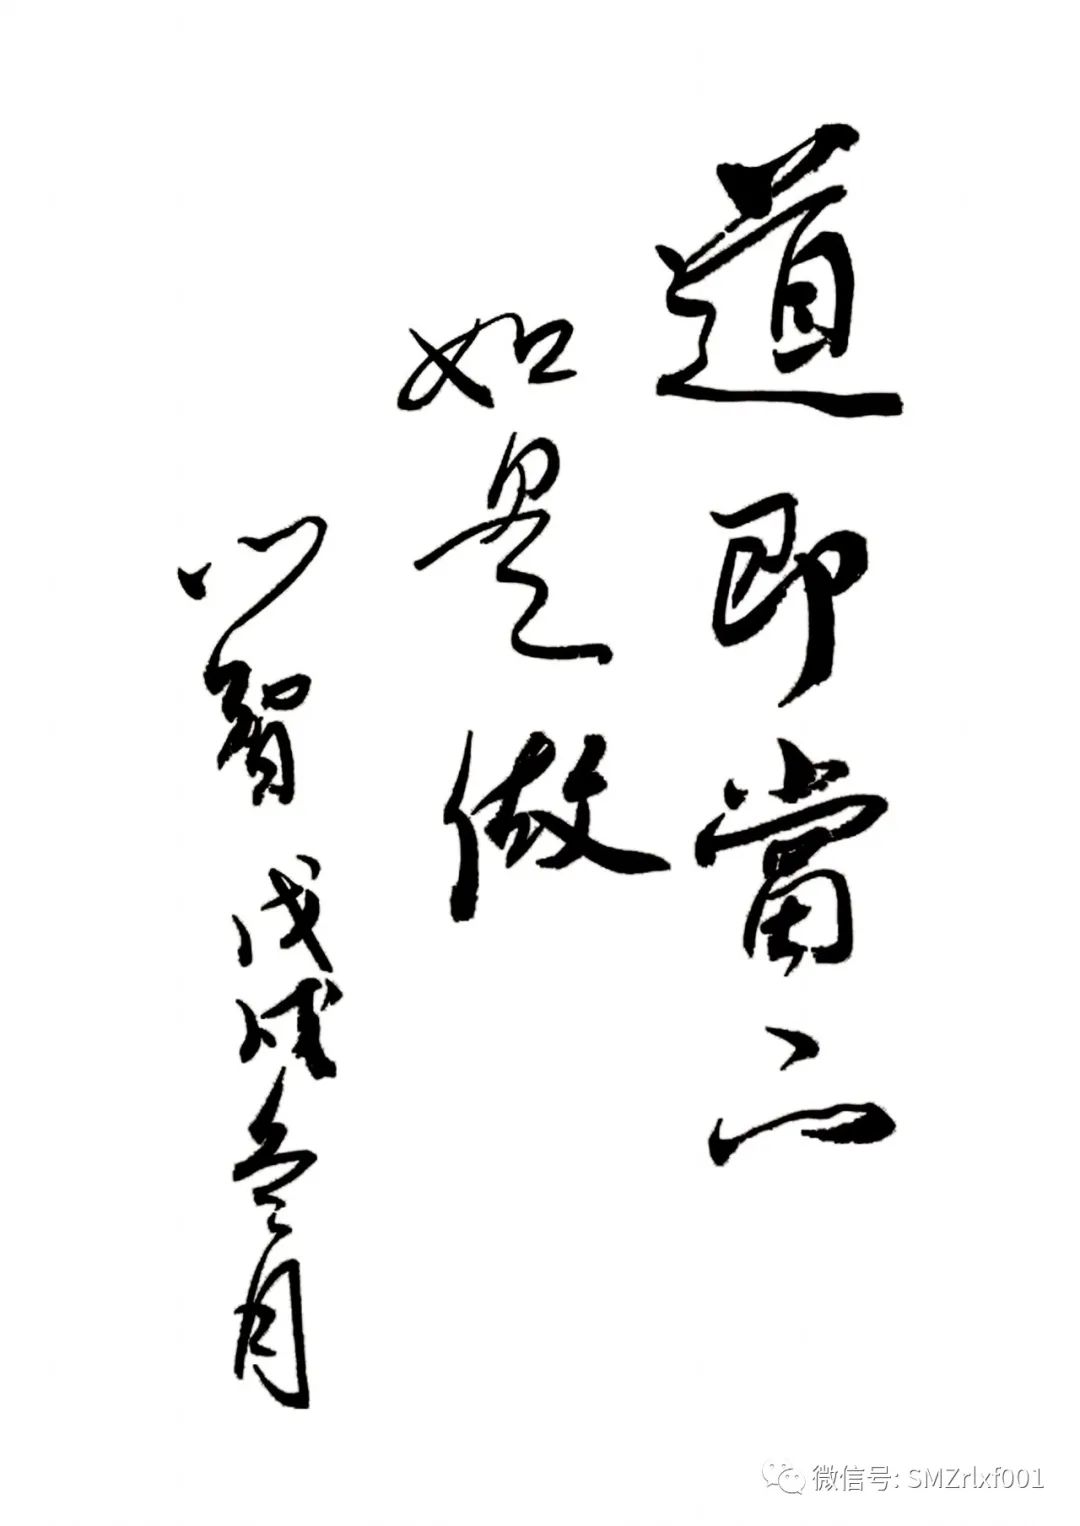 道即當下
如是做
戊戌叁月
微信号: SMZrlxf001